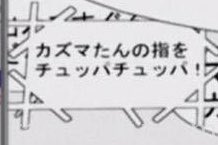 カズマたんの指を
チュッパチュッパ！